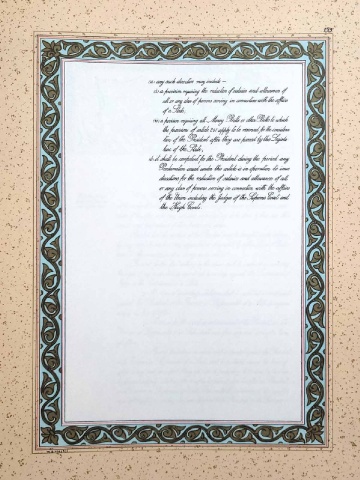 (a) any such direction may include —
(i) a provision requiring the reduction of salaries and allowances of
all or any class of persons serving in connection with the affairs
of a State;
(ii) a provision requiring all Money Bills or other Bills to which
the provisions of article 207 apply to be reserved for the considera-
tion of the President after they are passed by the Legisla-
ture of the State;
(b) it shall be competent for the President during the period any
Proclamation issued under this article is in operation to issue
directions for the reduction of salaries and allowances of all
or any class of persons serving in connection with the affairs
of the Union including the Judges of the Supreme Court and
the High Courts.